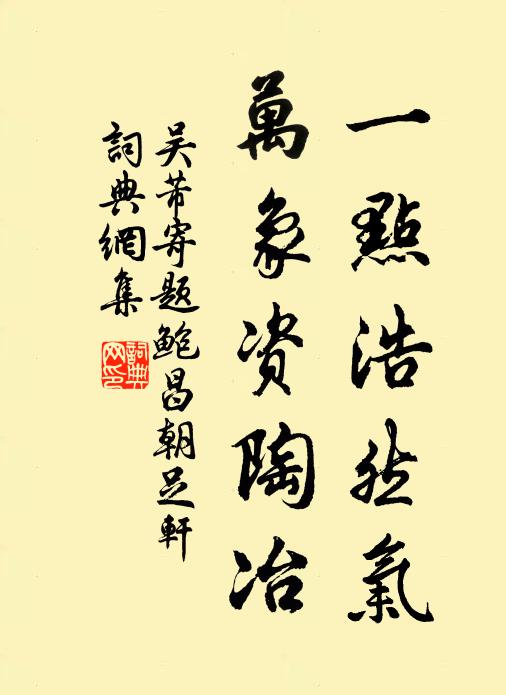 一點浩然氣
萬象資陶冶
吴芾寄题鲍昌朝足軒
詞典網集
詞典網印